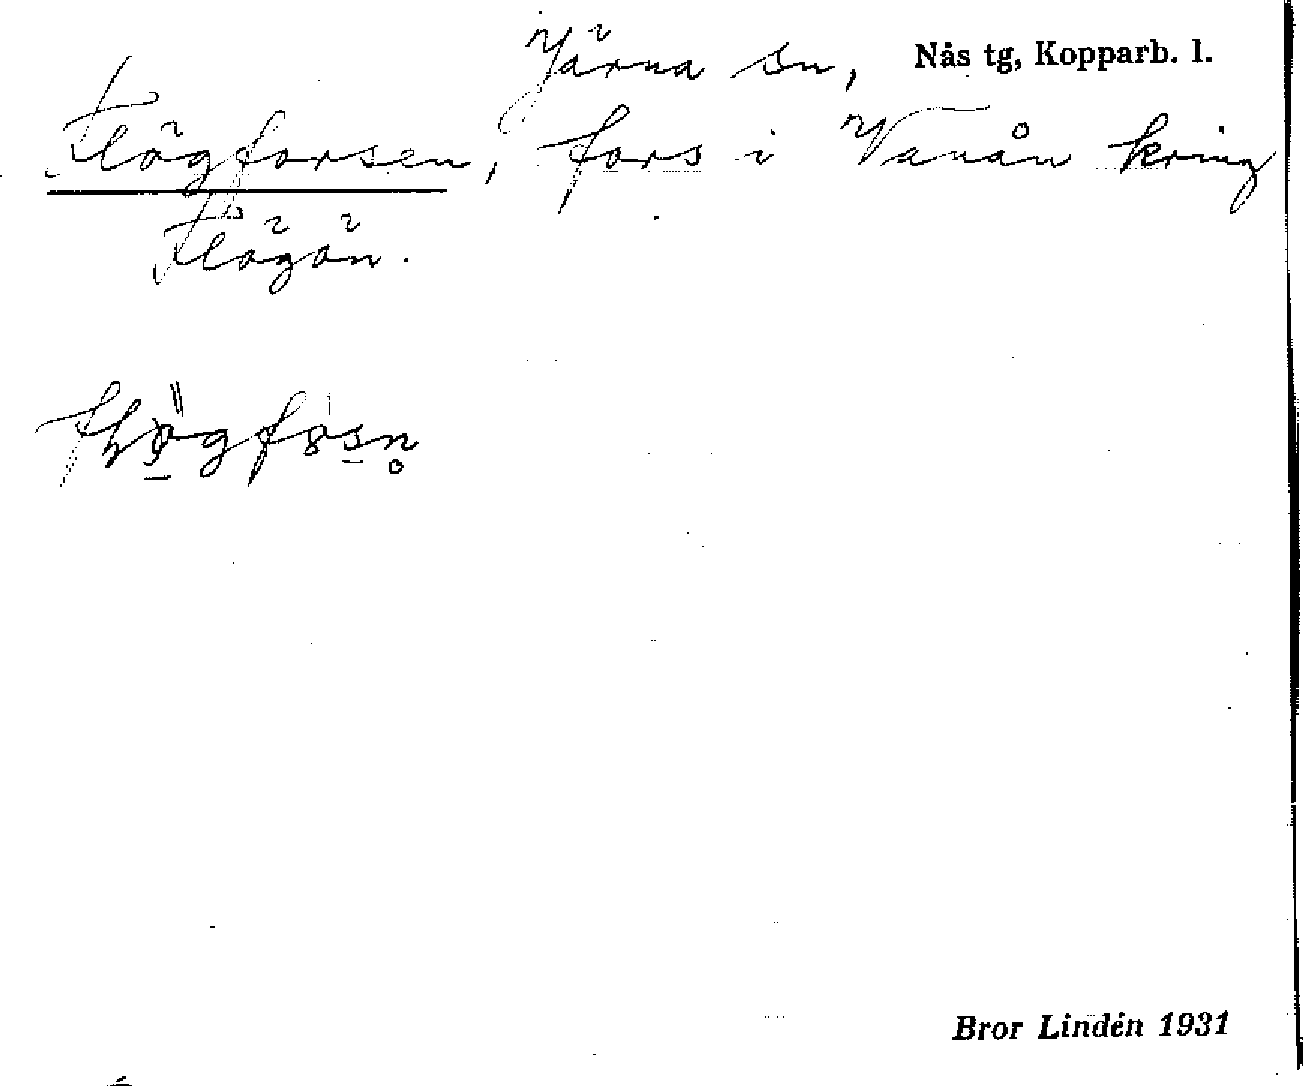 Järna sn, Nås tg, Kopparb. l.
Flögforsen, fors i Vanån kring
Flögön.
Bror Lindén 1931